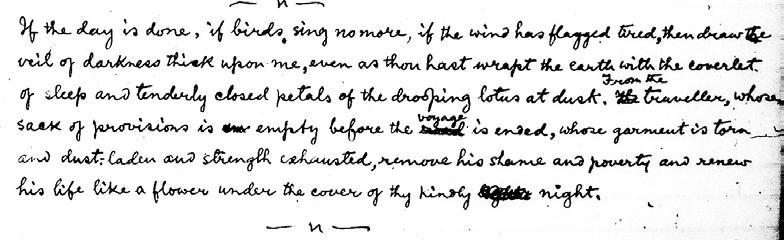 If the day is done, if birds sing no more, if the wind has flagged tired, then draw the
veil of darkness thick upon me, even as thou hast wrapt the earth with the coverlet
of sleep and tenderly closed petals of the drooping lotus at dusk. From the traveller, whose
sack of provisions is empty before the voyage is ended, whose garment is torn
and dust-laden and strength exhausted, remove his shame and poverty and renew
his life like a flower under the cover of thy kindly night.